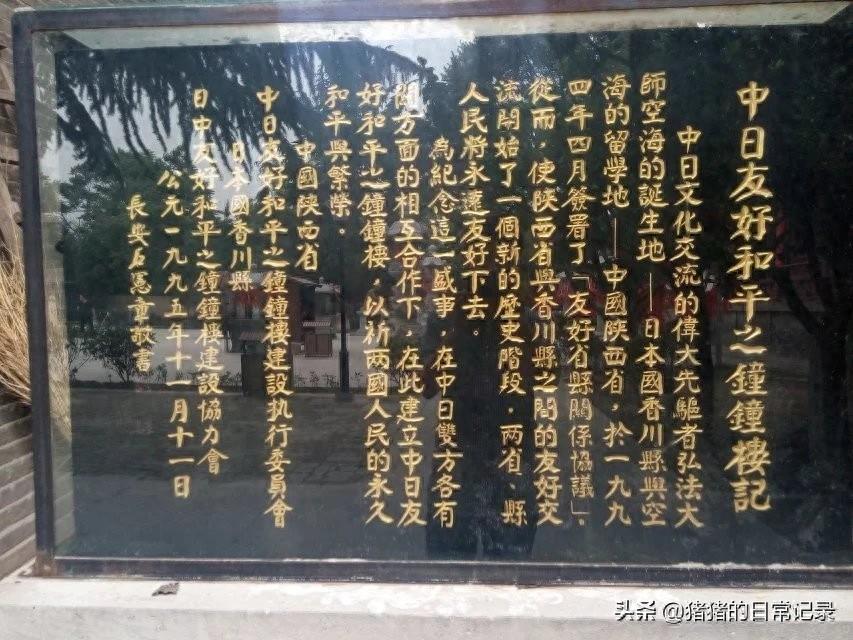 中日友好和平之鐘鐘樓記
中日文化交流的偉大先驅者弘法大
師空海的誕生地——日本國香川縣與空
海的留學地——中國陝西省，於一九九
四年四月簽署了「友好省縣關係協議」，
從而，使陝西省與香川縣之間的友好交
流開始了一個新的歷史階段，兩省、縣
人民將永遠友好下去。
為紀念這一盛事，在中日雙方各有
關方面的相互合作下，在此建立中日友
好和平之鐘鐘樓，以祈兩國人民的永久
和平與繁榮。
中國陝西省
中日友好和平之鐘鐘樓建設执行委員會
日本國香川縣
日中友好和平之鐘鐘樓建設協力會
公元一九九五年十一月十一日
長安丘憲童敬書
头条 @猪猪的日常记录